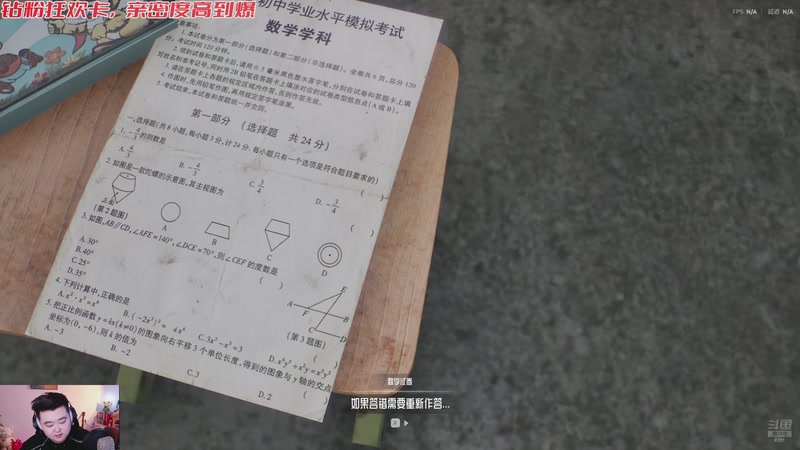 钻粉狂欢卡，亲密度高到爆
FPS N/A | 延迟 N/A
初中学业水平模拟考试
数学学科
1. 本试卷分为第一部分(选择题)和第二部分(非选择题)。全卷共6页，总分120
分。考试时间120分钟。
2. 领到试卷和答题卡后，请用0.5毫米黑色墨水签字笔，分别在试卷和答题卡上填
写姓名和准考证号，同时用2B铅笔在答题卡上填涂对应的试卷类型信息点(A或B)。
3. 请在答题卡上各题的规定区域内作答，否则作答无效。
4. 作图时，先用铅笔作图，再用规定签字笔涂黑。
5. 考试结束，本试卷和答题纸一并交回。
第一部分 (选择题 共24分)
一、选择题(共8小题，每小题3分，计24分.每小题只有一个选项是符合题目要求的)
1. -4/3的倒数是 ( )
A. 4/3 B. -4/3 C. 3/4 D. -3/4
2. 如图是一款陀螺的示意图，其主视图为 ( )
正面
(第2题图) A B C D
3. 如图，AB∥CD，∠AFE=140°，∠DCE=70°，则∠CEF的度数是 ( )
A. 30°
B. 40°
C. 25°
D. 35°
A F E B C D
(第3题图)
4. 下列计算中，正确的是 ( )
B. (-2x²)²= 4x⁴ C. 3x²-x²=3
5. 把正比例函数y=kx(k≠0)的图象向右平移3个单位长度，得到的图象与y轴的交点
坐标为(0，-6)，则k的值为 ( )
A. -3 B. -2 C. 3 D. 2
数学试卷
如果答错需要重新作答...
F
斗鱼